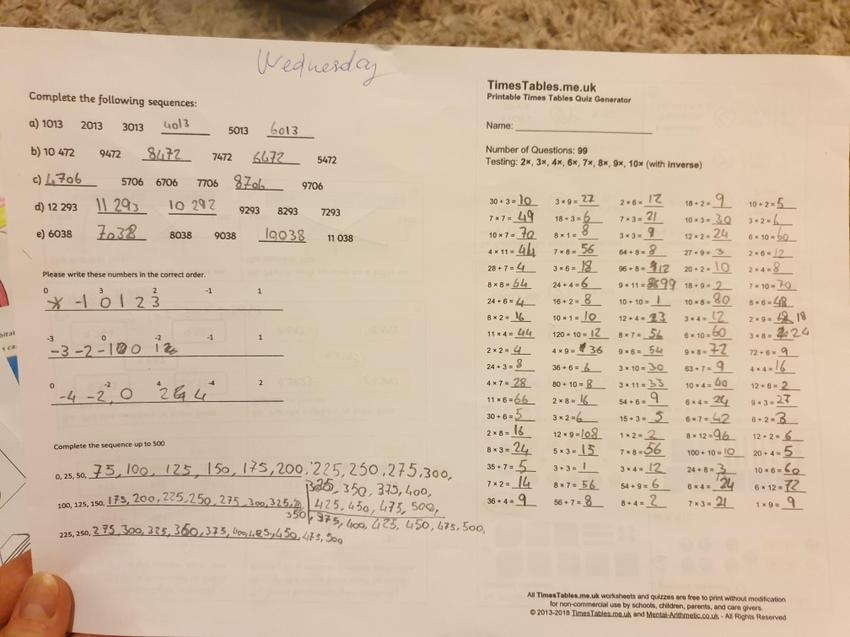 Wednesday
Complete the following sequences:
a) 1013 2013 3013 4013 5013 6013
b) 10 472 9472 8472 7472 6472 5472
c) 4706 5706 6706 7706 8706 9706
d) 12 293 11 293 10 292 9293 8293 7293
e) 6038 7038 8038 9038 10038 11 038
Please write these numbers in the correct order.
0 3 2 -1 1
-1 0 1 2 3
-3 0 -2 -1 1
-3 -2 -1 0 1
0 -2 4 -4 2
-4 -2, 0 2 4
Complete the sequence up to 500
0, 25, 50, 75, 100, 125, 150, 175, 200, 225, 250, 275, 300,
325, 350, 375, 400,
425, 450, 475, 500,
100, 125, 150, 175, 200, 225, 250, 275, 300, 325,
350, 375, 400, 425, 450, 475, 500,
225, 250, 275, 300, 325, 350, 375, 400, 425, 450, 475, 500
TimesTables.me.uk
Printable Times Tables Quiz Generator
Name:
Number of Questions: 99
Testing: 2×, 3×, 4×, 6×, 7×, 8×, 9×, 10× (with inverse)
30 ÷ 3 = 10 3 × 9 = 27 2 × 6 = 12 18 ÷ 2 = 9 10 ÷ 2 = 5
7 × 7 = 49 18 ÷ 3 = 6 7 × 3 = 21 10 × 3 = 30 3 × 2 = 6
10 × 7 = 70 8 × 1 = 8 3 × 3 = 9 12 × 2 = 24 6 × 10 = 60
4 × 11 = 44 7 × 8 = 56 64 ÷ 8 = 8 27 ÷ 9 = 3 2 × 6 = 12
28 ÷ 7 = 4 3 × 6 = 18 96 ÷ 8 = 12 20 ÷ 2 = 10 2 × 4 = 8
8 × 8 = 64 24 ÷ 4 = 6 9 × 11 = 99 18 ÷ 9 = 2 7 × 10 = 70
24 ÷ 6 = 4 16 ÷ 2 = 8 10 ÷ 10 = 1 10 × 8 = 80 8 × 6 = 48
8 × 2 = 16 10 × 1 = 10 12 ÷ 4 = 3 3 × 4 = 12 2 × 9 = 18
11 × 4 = 44 120 ÷ 10 = 12 8 × 7 = 56 6 × 10 = 60 3 × 8 = 24
2 × 2 = 4 4 × 9 = 36 9 × 6 = 54 9 × 8 = 72 72 ÷ 6 = 9
24 ÷ 3 = 8 36 ÷ 6 = 6 3 × 10 = 30 63 ÷ 7 = 9 4 × 4 = 16
4 × 7 = 28 80 ÷ 10 = 8 3 × 11 = 33 10 × 4 = 40 12 ÷ 6 = 2
11 × 6 = 66 2 × 8 = 16 54 ÷ 6 = 9 6 × 4 = 24 9 × 3 = 27
30 ÷ 6 = 5 3 × 2 = 6 15 ÷ 3 = 5 6 × 7 = 42 6 ÷ 2 = 3
2 × 8 = 16 12 × 9 = 108 1 × 2 = 2 8 × 12 = 96 12 ÷ 2 = 6
8 × 3 = 24 5 × 3 = 15 7 × 8 = 56 100 ÷ 10 = 10 20 ÷ 4 = 5
35 ÷ 7 = 5 3 ÷ 3 = 1 3 × 4 = 12 24 ÷ 8 = 3 10 × 6 = 60
7 × 2 = 14 8 × 7 = 56 54 ÷ 9 = 6 6 × 4 = 24 6 × 12 = 72
36 ÷ 4 = 9 56 ÷ 7 = 8 8 ÷ 4 = 2 7 × 3 = 21 1 × 9 = 9
All TimesTables.me.uk worksheets and quizzes are free to print without modification
for non-commercial use by schools, children, parents, and care givers.
© 2013-2018 TimesTables.me.uk and Mental-Arithmetic.co.uk - All Rights Reserved